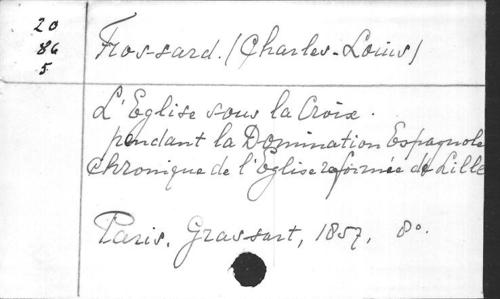 20
86
5.
Frossard. (Charles-Louis)
L'Eglise sous la Croix.
pendant la Domination Espagnole
Chronique de l'Église reformée de Lille
Paris, Grassart, 1857, 8°.